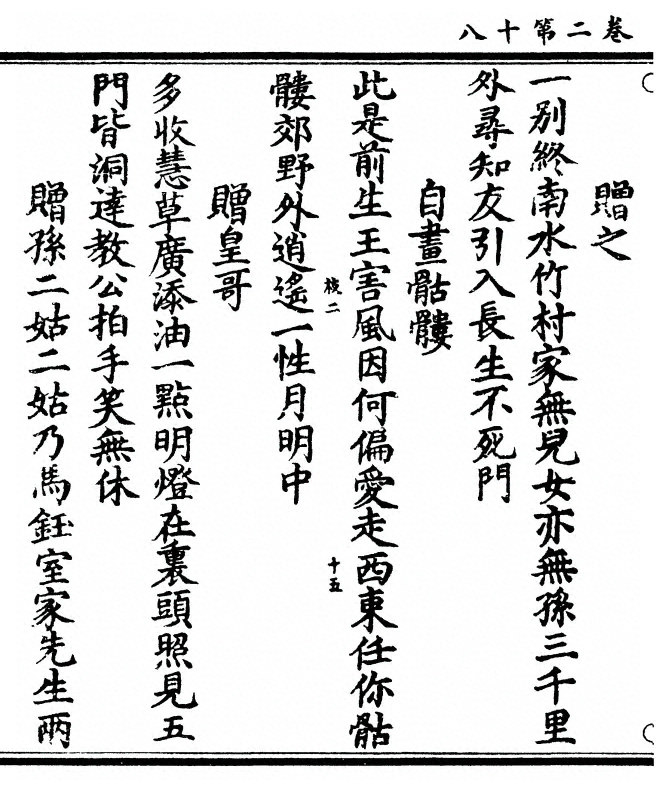 卷二第十八
贈之
一別終南水竹村家無兒女亦無孫三千里
外尋知友引入長生不死門
自畫骷髏
此是前生王害風因何偏愛走西東任你骷
枝二 十五
髏郊野外逍遙一性月明中
贈皇哥
多收慧草廣添油一點明燈在裏頭照見五
門皆洞達教公拍手笑無休
贈孫二姑二姑乃馬鈺室家先生兩